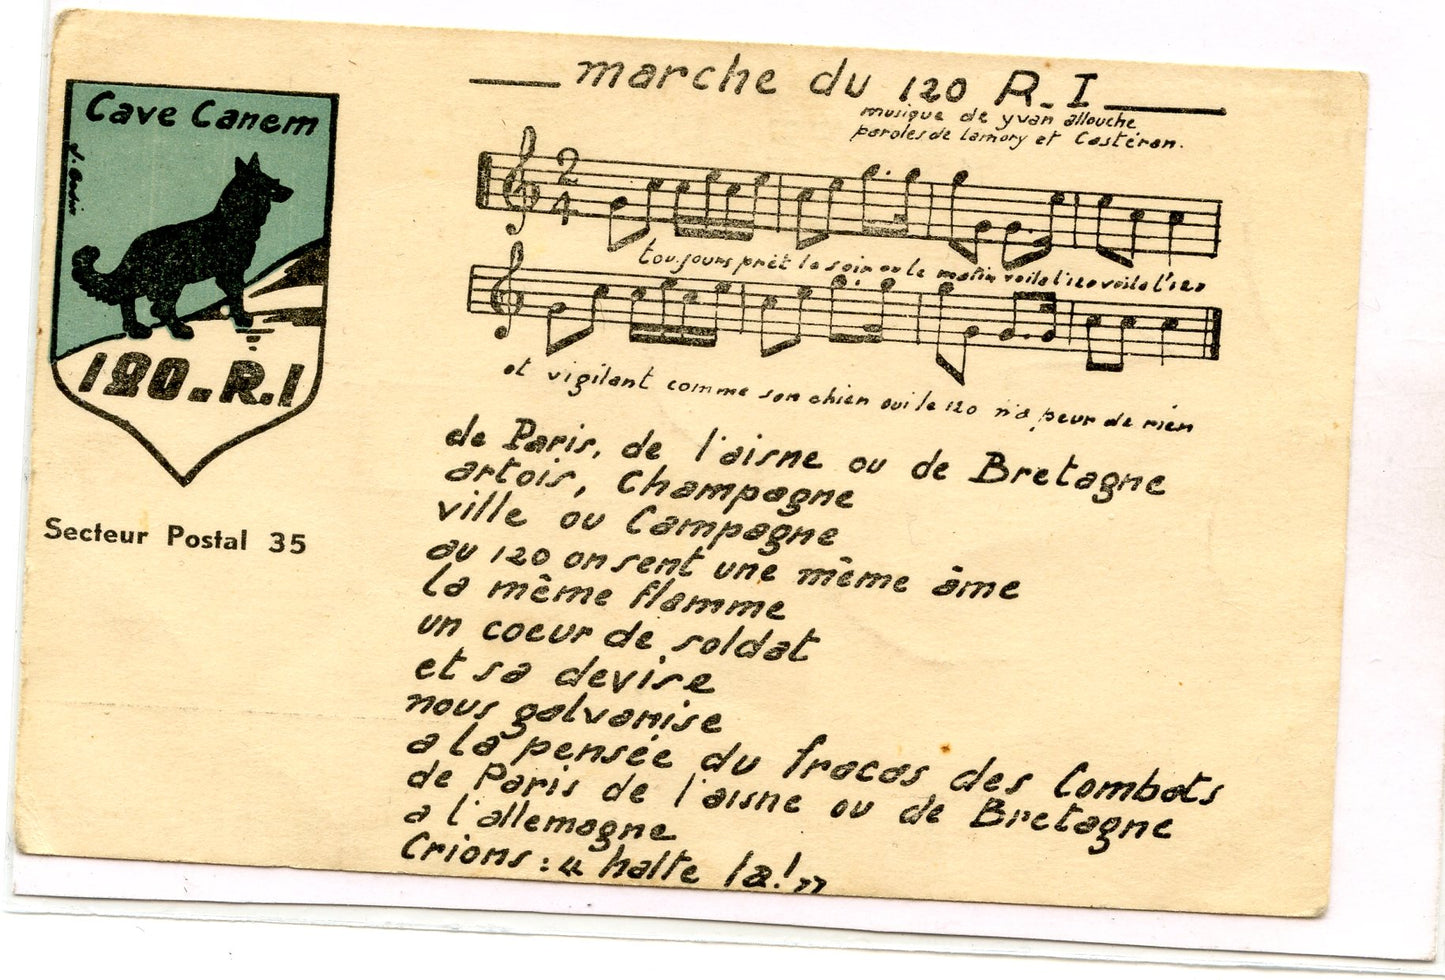 Cave Canem
120.R.I
Secteur Postal 35
marche du 120 R.I
musique de yvan allouche
paroles de Lamory et Castéran.
2
4
toujours prèt le soir ou le matin voila l'120 voila l'120
et vigilant comme son chien oui le 120 n'a peur de rien
de Paris, de l'aisne ou de Bretagne
artois, Champagne
ville ou Campagne
au 120 on sent une même âme
la même flamme
un coeur de soldat
et sa devise
nous galvanise
a la pensée du fracas des Combats
de Paris de l'aisne ou de Bretagne
a l'allemagne
Crions : « halte la! »